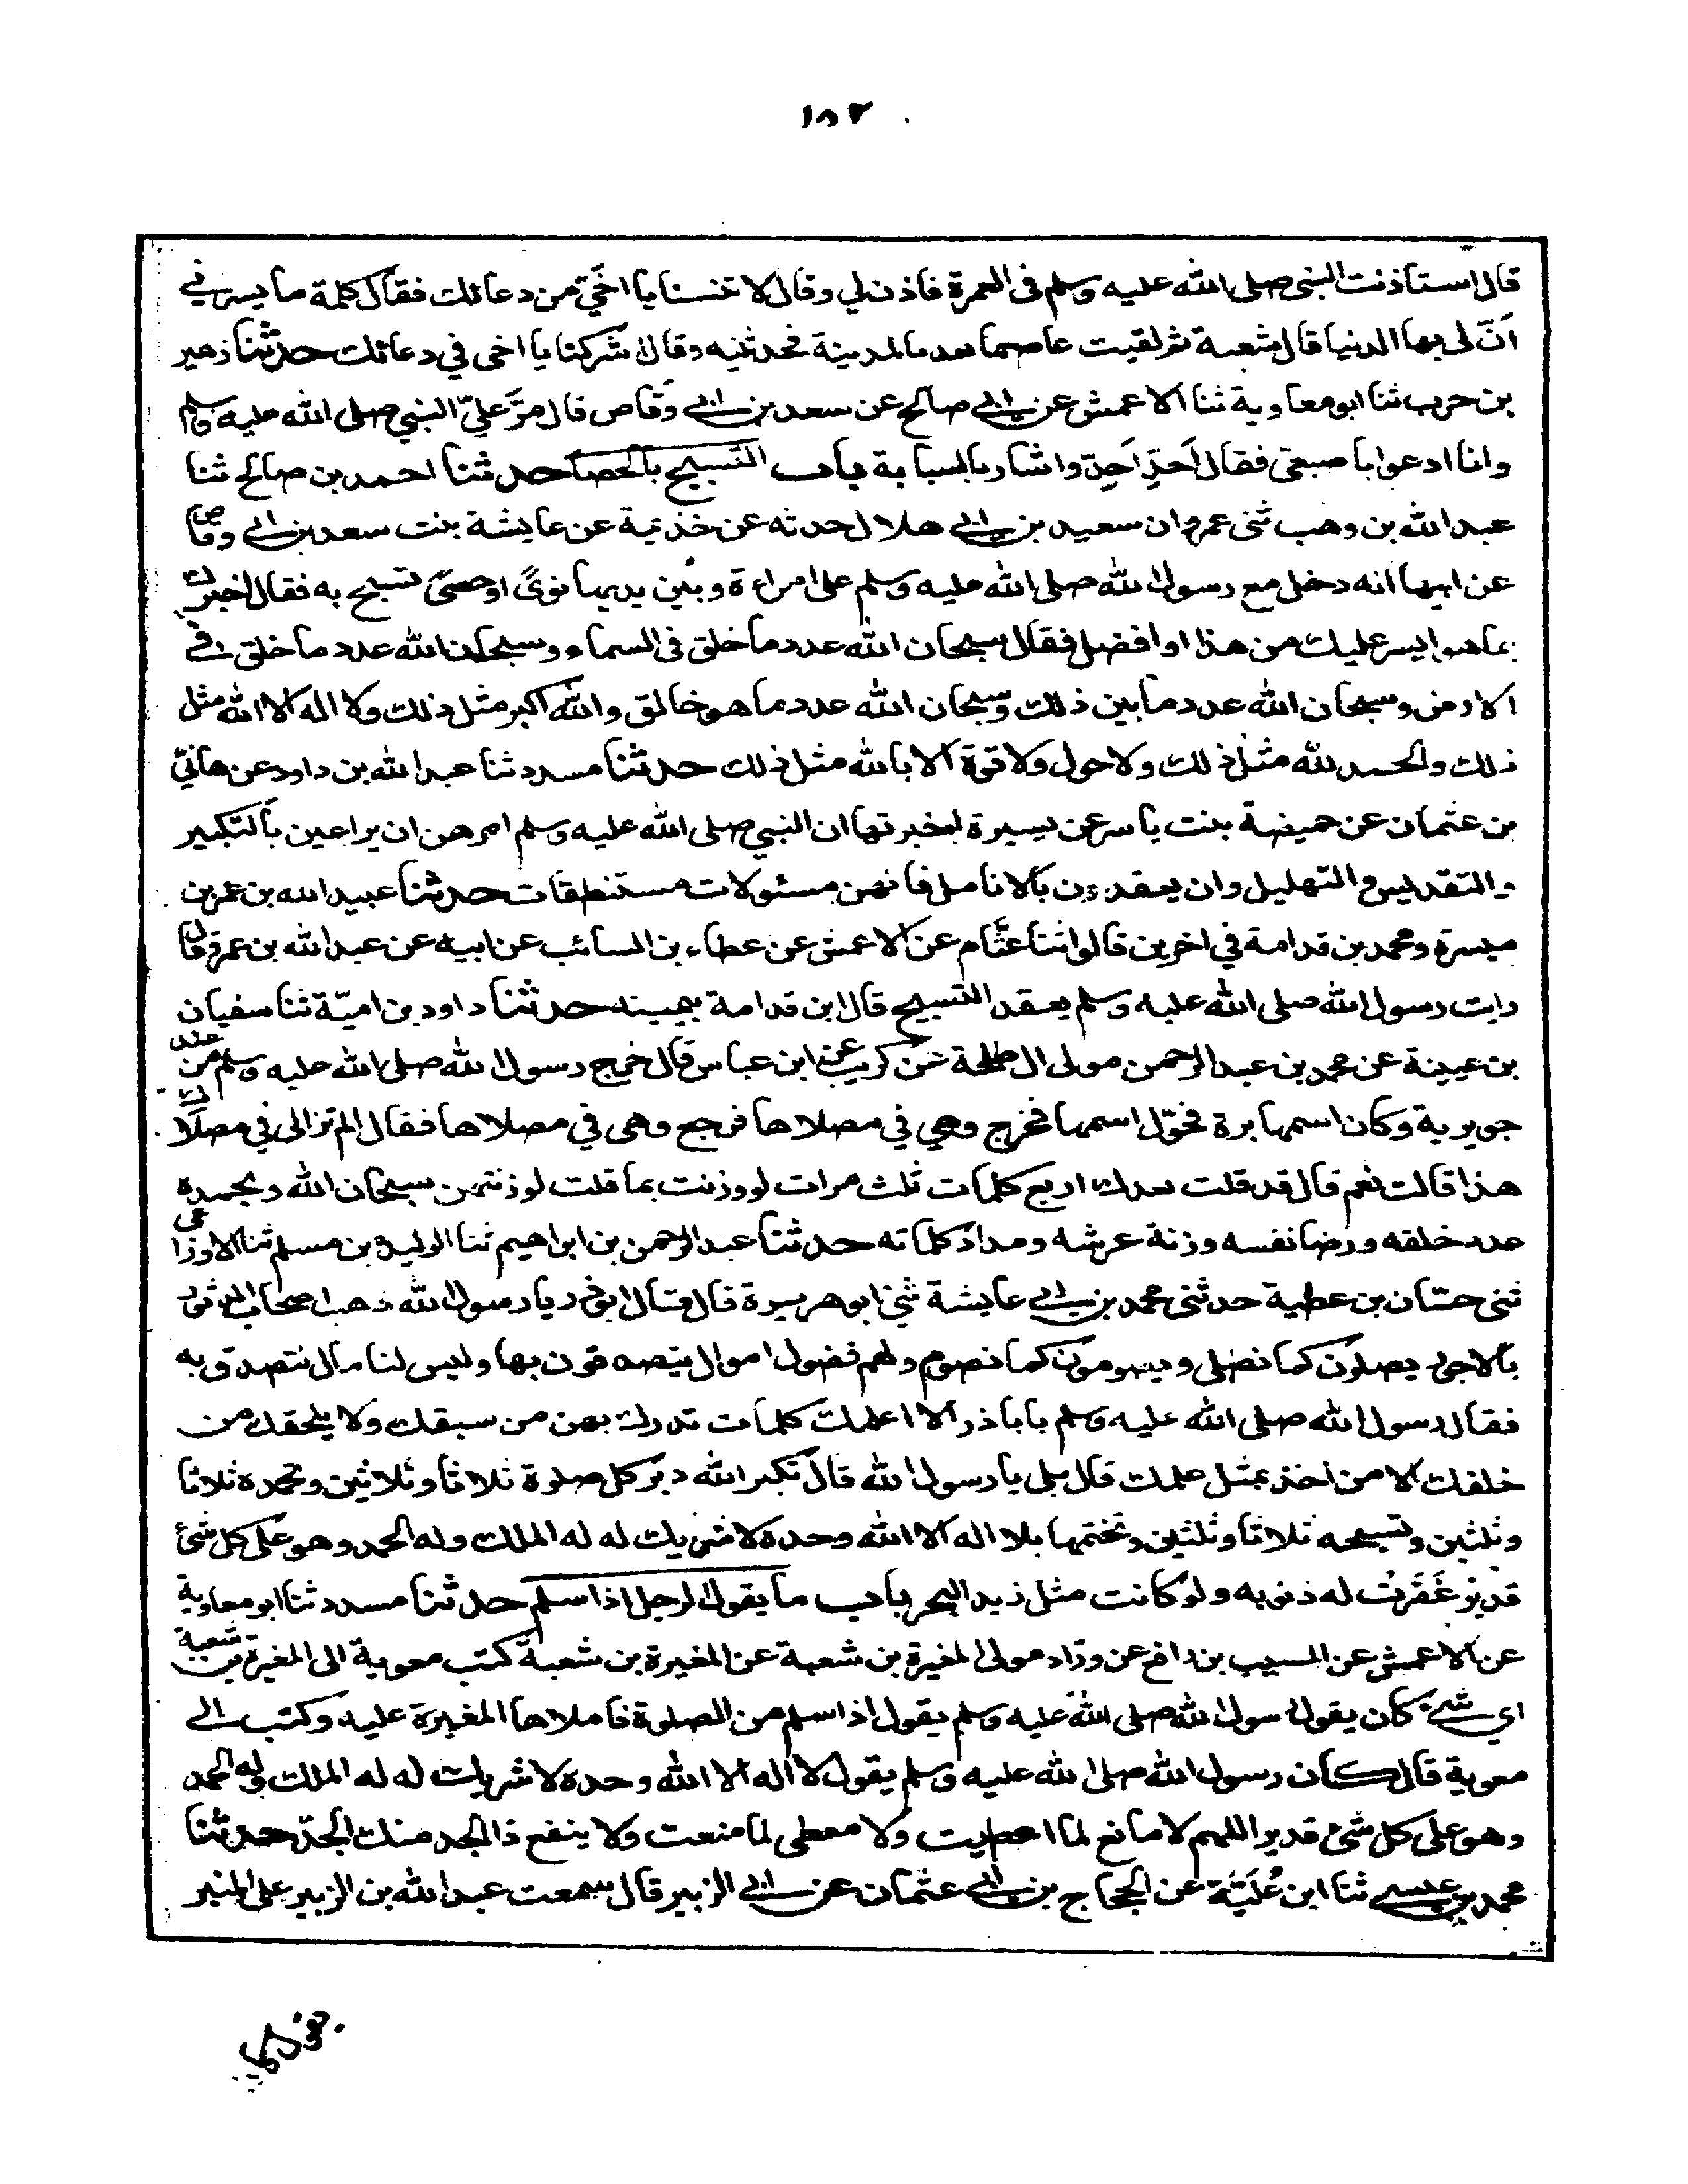 ١٨٢
قال استاذنت النبى صلى الله عليه وسلم فى العمرة فاذن لي وقال لا تنسنا يا اخَيّ من دعائك فقال كلمة ما يسرني
اَنّ لى بها الدنيا قال شعبة ثم لقيت عاصما بعد بالمدينة فحدثنيه وقال اشركنا يا اخى في دعائك حدثنا زهير
بن حرب ثنا ابو معاوية ثنا الاعمش عن ابي صالح عن سعد بن ابي وقاص قال مرّ عليّ النبي صلى الله عليه وسلم
وانا ادعو باصبعى فقال اَحِّد اَحِّد واشار بالسبابة باب التسبيح بالحصا حدثنا احمد بن صالح ثنا
عبد الله بن وهب ثنى عمرو ان سعيد بن ابي هلال حدثه عن خذيمة عن عايشة بنت سعد بن ابي وقاص
عن ابيها انه دخل مع رسول الله صلى الله عليه وسلم على امراءة وبين يديها نوىً او حصىً تسبح به فقال اخبرك
بما هو ايسر عليك من هذا او افضل فقال سبحان الله عدد ما خلق فى السماء وسبحان الله عدد ما خلق في
الارض وسبحان الله عدد ما بين ذلك وسبحان الله عدد ما هو خالق والله اكبر مثل ذلك ولا اله الا الله مثل
ذلك والحمد لله مثل ذلك ولا حول ولا قوة الا بالله مثل ذلك حدثنا مسدد ثنا عبد الله بن داود عن هانئ
بن عثمان عن حميضة بنت ياسر عن يسيرة اخبرتها ان النبي صلى الله عليه وسلم امرهن ان يراعين بالتكبير
والتقديس والتهليل وان يعقدن بالانامل فانهن مسئولات مستنطقات حدثنا عبيد الله بن عمر بن
ميسرة ومحمد بن قدامة في اخرين قالوا ثنا عثّام عن الاعمش عن عطاء بن السائب عن ابيه عن عبد الله بن عمرو قال
رايت رسول الله صلى الله عليه وسلم يعقد التسبيح قال ابن قدامة بيمينه حدثنا داود بن اميّة ثنا سفيان
بن عيينة عن محمد بن عبد الرحمن مولى ال طلحة عن كريب عن ابن عباس قال خرج رسول الله صلى الله عليه وسلم من عند
جويرية وكان اسمها برة فحوّل اسمها فخرج وهي في مصلاها فرجع وهى في مصلاها فقال الم تزالى في مصلاك
هذا قالت نعم قال قد قلت بعدك اربع كلمات ثلث مرات لو وزنت بما قلت لوزنتهن سبحان الله وبحمده
عدد خلقه ورضا نفسه وزنة عرشه ومداد كلماته حدثنا عبد الرحمن بن ابراهيم ثنا الوليد بن مسلم ثنا الاوزاعى
ثنى حسّان بن عطية حدثنى محمد بن ابي عايشة ثنى ابو هريرة قال قال ابو ذر يا رسول الله ذهب اصحاب الدثور
بالاجور يصلون كما نصلى ويصومون كما نصوم ولهم فضول اموال يتصدقون بها وليس لنا مال نتصدق به
فقال رسول الله صلى الله عليه وسلم يا باذر الا اعلمك كلمات تدرك بهن من سبقك ولا يلحقك من
خلفك الا من اخذ بمثل عملك قال بلى يا رسول الله قال تكبر الله دبر كل صلوة ثلاثا وثلاثين وتحمده ثلاثا
وثلثين وتسبحه ثلاثا وثلثين وتختمها بلا اله الا الله وحده لا شريك له له الملك وله الحمد وهو على كل شئ
قدير غَفَرَتْ له ذنوبه ولو كانت مثل زبد البحر باب ما يقول الرجل اذا سلم حدثنا مسدد ثنا ابو معاوية
عن الاعمش عن المسيب بن رافع عن ورّاد مولى المغيرة بن شعبة عن المغيرة بن شعبة كتب معوية الى المغيرة بن شعبة
اي شيء كان يقول رسول الله صلى الله عليه وسلم يقول اذا سلم من الصلوة فاملاها المغيرة عليه وكتب الى
معوية قال كان رسول الله صلى الله عليه وسلم يقول لا اله الا الله وحده لا شريك له له الملك وله الحمد
وهو على كل شئ قدير اللهم لا مانع لما اعطيت ولا معطى لما منعت ولا ينفع ذا الجد منك الجدّ حدثنا
محمد بن عيسى ثنا ابن عُلَيَّة عن الحجاج بن ابي عثمان عن ابي الزبير قال سمعت عبد الله بن الزبير على المنبر